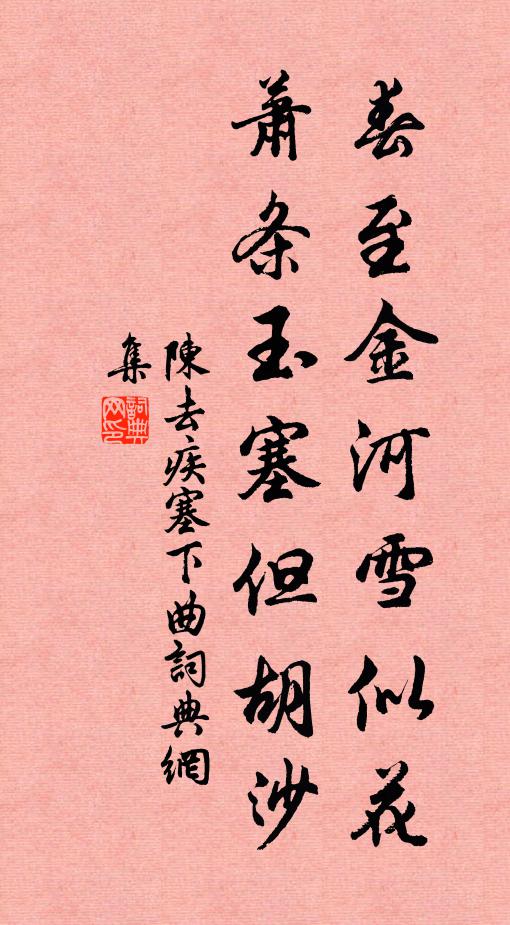 春至金河雪似花
萧条玉塞但胡沙
陳去疾塞下曲詞典網
集
詞典
网印